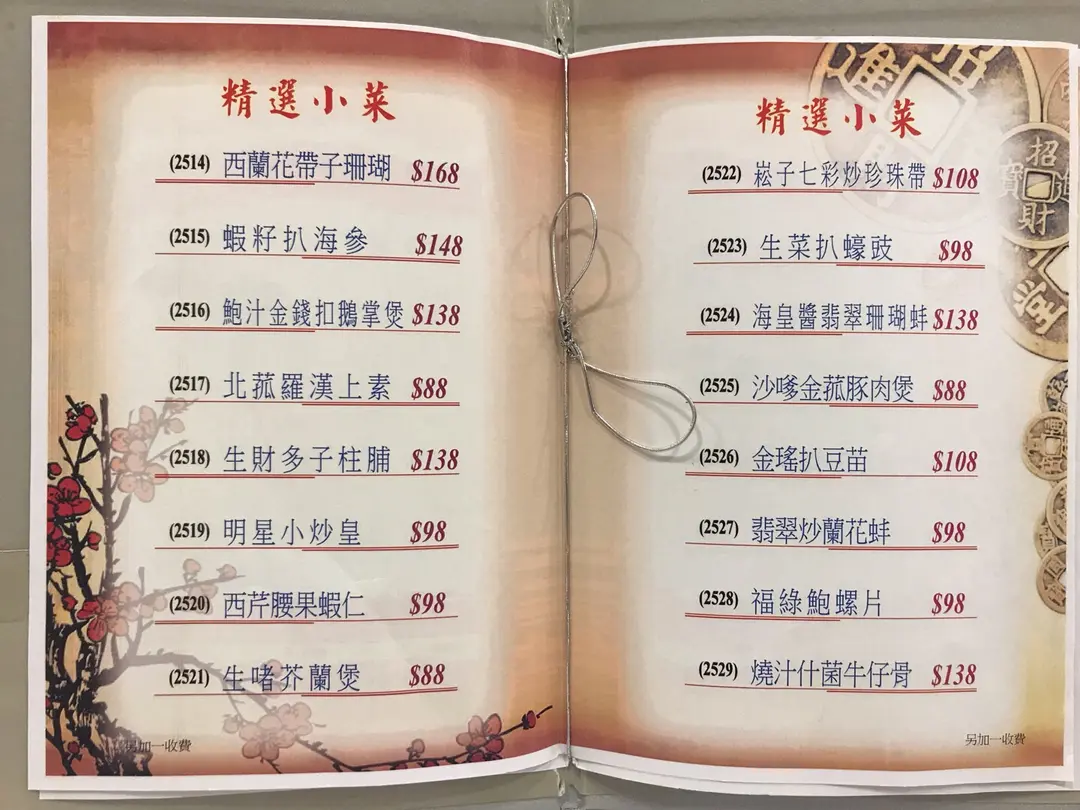 精選小菜
(2514) 西蘭花帶子珊瑚 $168
(2515) 蝦籽扒海參 $148
(2516) 鮑汁金錢扣鵝掌煲 $138
(2517) 北菰羅漢上素 $88
(2518) 生財多子柱脯 $138
(2519) 明星小炒皇 $98
(2520) 西芹腰果蝦仁 $98
(2521) 生啫芥蘭煲 $88
另加一收費
精選小菜
(2522) 崧子七彩炒珍珠帶 $108
(2523) 生菜扒蠔豉 $98
(2524) 海皇醬翡翠珊瑚蚌 $138
(2525) 沙嗲金菰豚肉煲 $88
(2526) 金瑤扒豆苗 $108
(2527) 翡翠炒蘭花蚌 $98
(2528) 福綠鮑螺片 $98
(2529) 燒汁什菌牛仔骨 $138
另加一收費
招
財
寶